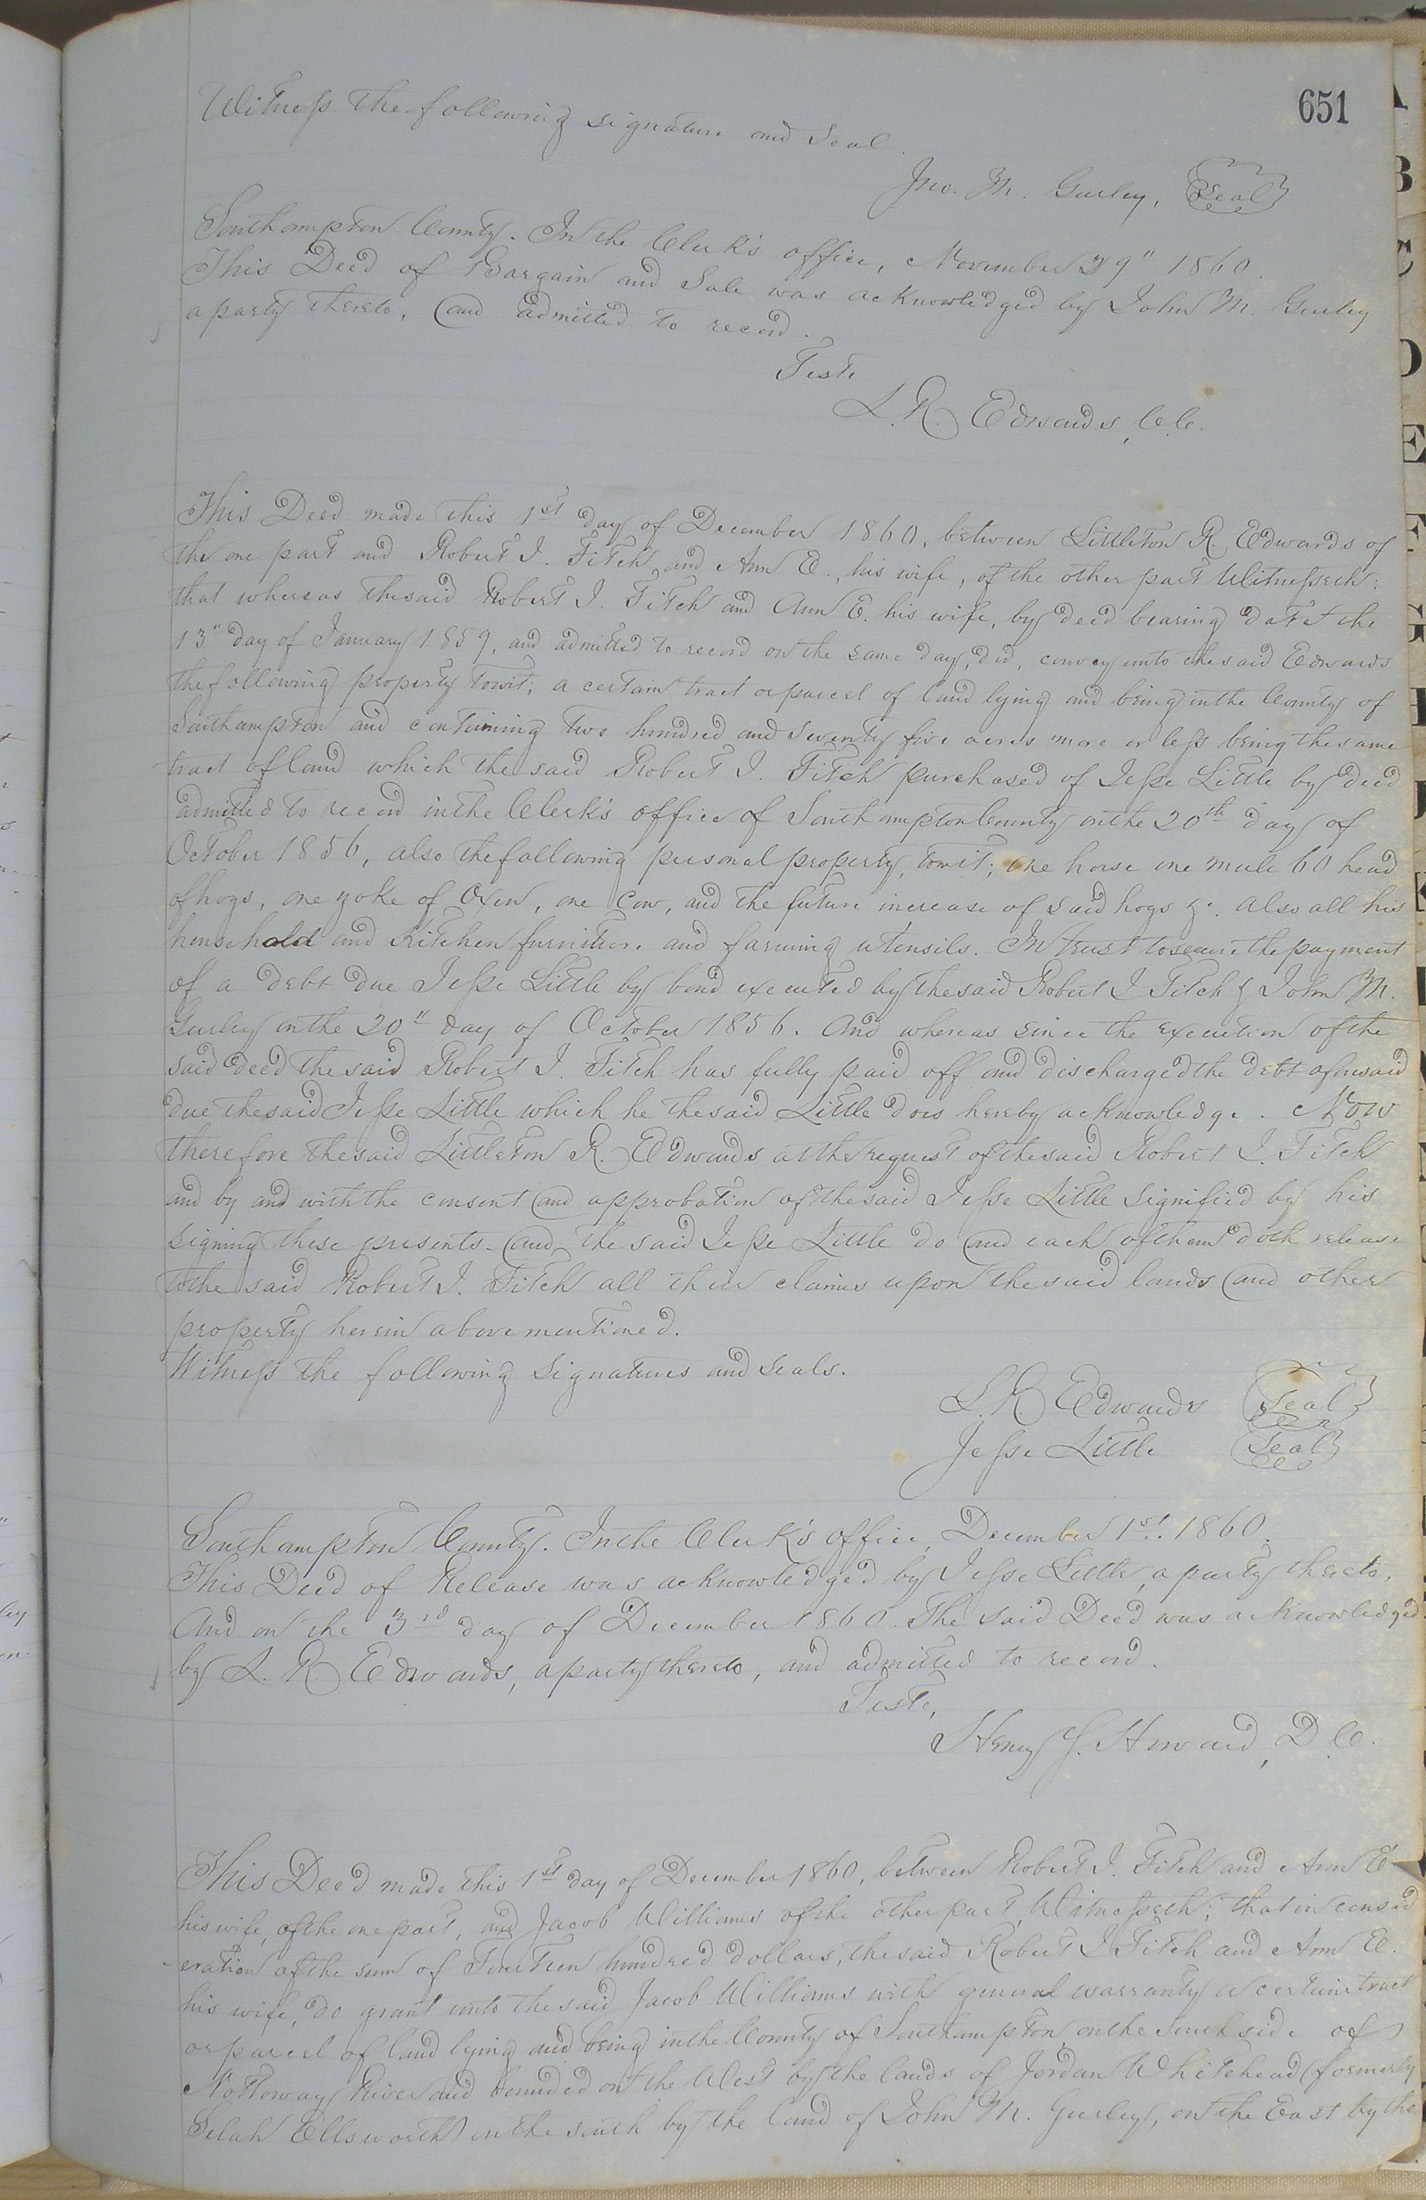 651
Witness the following signature and seal.
Jno. M. Gurley, Seal
Southampton County. In the Clerk's office, November 29" 1860.
This Deed of Bargain and Sale was acknowledged by John M. Gurley
a party thereto, and admitted to record.
Teste
L. R. Edwards, C.C.
This Deed made this 1st day of December 1860, between Littleton R. Edwards of
the one part and Robert J. Fitch and Ann E., his wife, of the other part Witnesseth:
that whereas the said Robert J. Fitch and Ann E. his wife, by deed bearing date the
13" day of January 1859, and admitted to record on the same day, did, convey unto the said Edwards
the following property towit; a certain tract or parcel of land lying and being in the County of
Southampton and containing two hundred and seventy five acres more or less being the same
tract of land which the said Robert J. Fitch purchased of Jesse Little by deed
admitted to record in the Clerk's office of Southampton County on the 20th day of
October 1856, also the following personal property, towit; one horse one mule 60 head
of hogs, one yoke of Oxen, one Cow, and the future increase of said hogs &c. also all his
household and kitchen furniture and farming utensils. In trust to secure the payment
of a debt due Jesse Little by bond executed by the said Robert J Fitch & John M.
Gurley on the 20" day of October 1856. And whereas since the execution of the
said deed the said Robert J. Fitch has fully paid off and discharged the debt aforesaid
due the said Jesse Little which he the said Little does hereby acknowledge. Now
therefore the said Littleton R. Edwards at the request of the said Robert J. Fitch
and by and with the consent and approbation of the said Jesse Little signified by his
signing these presents. and the said Jesse Little do and each of them doth release
to the said Robert J. Fitch all their claims upon the said lands and other
property herein above mentioned.
Witness the following signatures and seals.
L. R. Edwards Seal
Jesse Little Seal
Southampton County. In the Clerk's office, December 1st. 1860.
This Deed of Release was acknowledged by Jesse Little, a party thereto.
And on the 3rd day of December 1860. The said Deed was acknowledged
by L. R. Edwards, a party thereto, and admitted to record.
Teste,
Henry Howard, D.C.
This Deed made this 1st day of December 1860, between Robert J. Fitch and Ann E
his wife, of the one part, and Jacob Williams of the other part, Witnesseth; that in consid
-eration of the sum of Fourteen hundred dollars, the said Robert J Fitch and Ann E.
his wife, do grant unto the said Jacob Williams with general warranty a certain tract
or parcel of land lying and being in the County of Southampton, on the South side of
Nottoway River and bounded on the West by the lands of Jordan Whitehead (formerly
Selah Ellsworth) on the south by the land of John M. Gurley, on the East by the